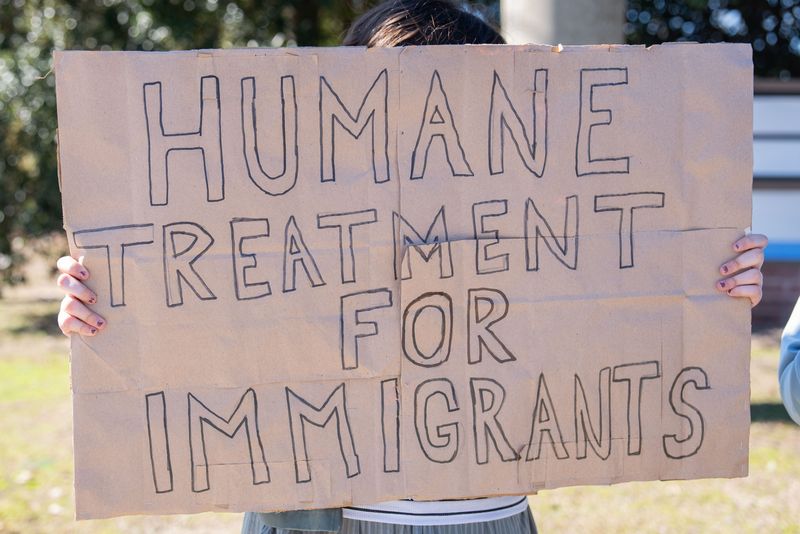 HUMANE
TREATMENT
FOR
IMMIGRANTS